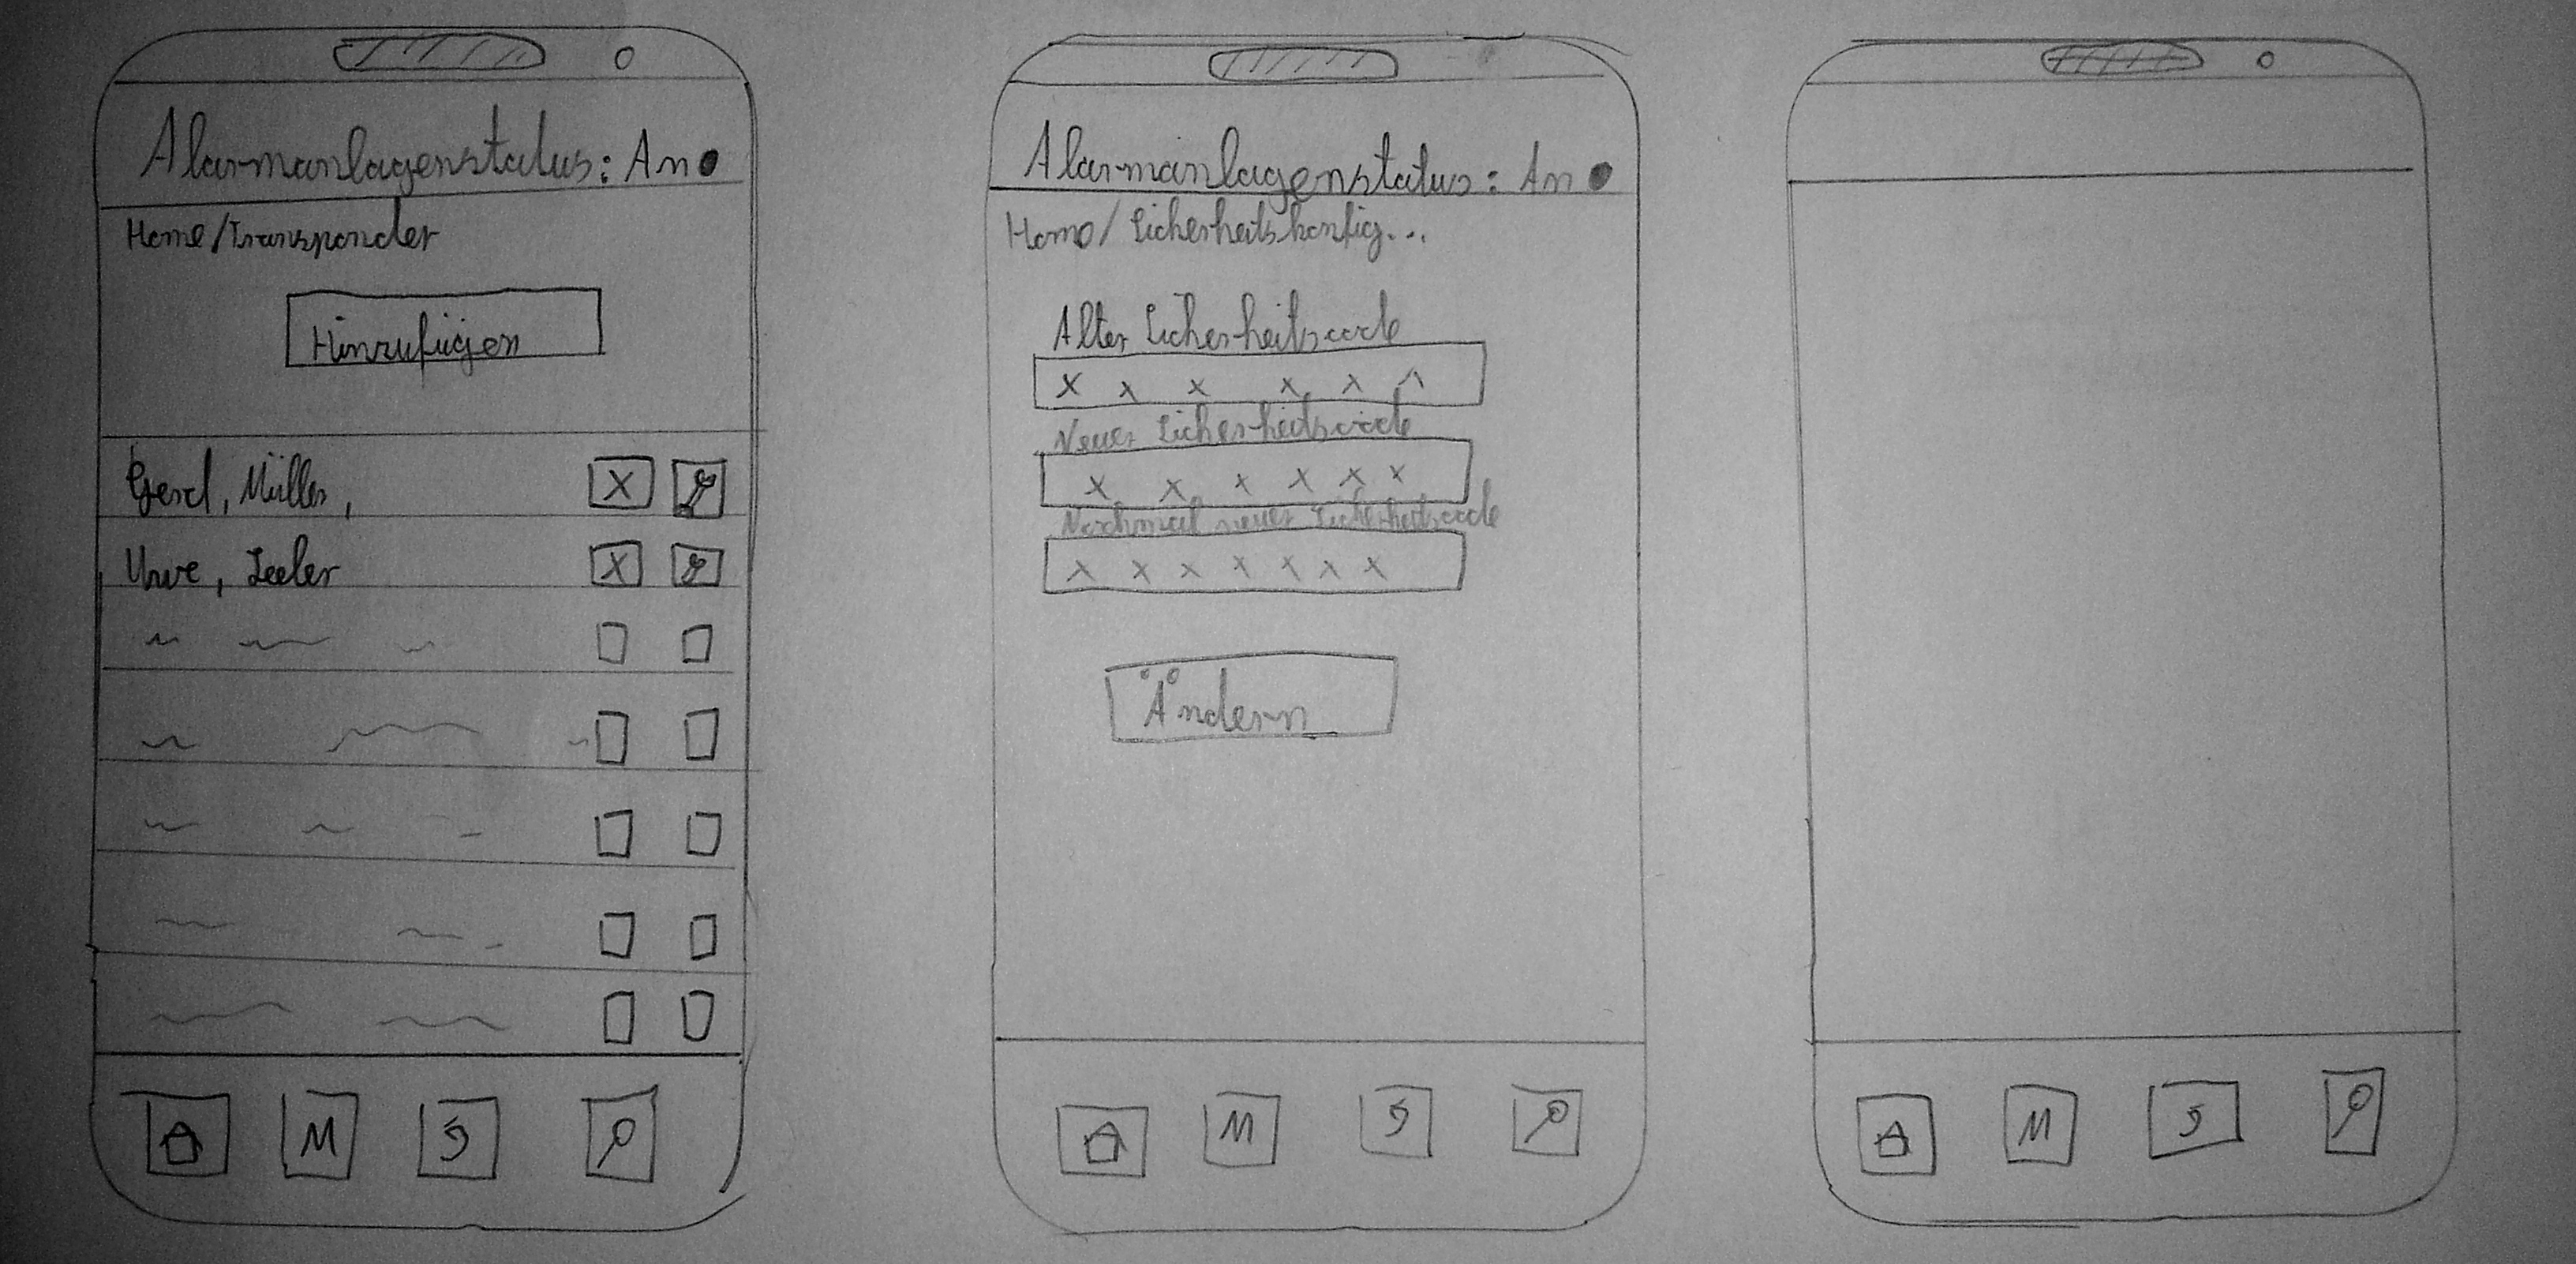 Alarmanlagenstatus: An
Home/Transponder
Hinzufügen
Gerd, Müller,
X
Uwe, Seeler
X
M
Alarmanlagenstatus: An
Home/Sicherheitskonfig...
Alter Sicherheitscode
x x x x x x
Neuer Sicherheitscode
x x x x x x
Nochmal neuer Sicherheitscode
x x x x x x x
Ändern
M
M